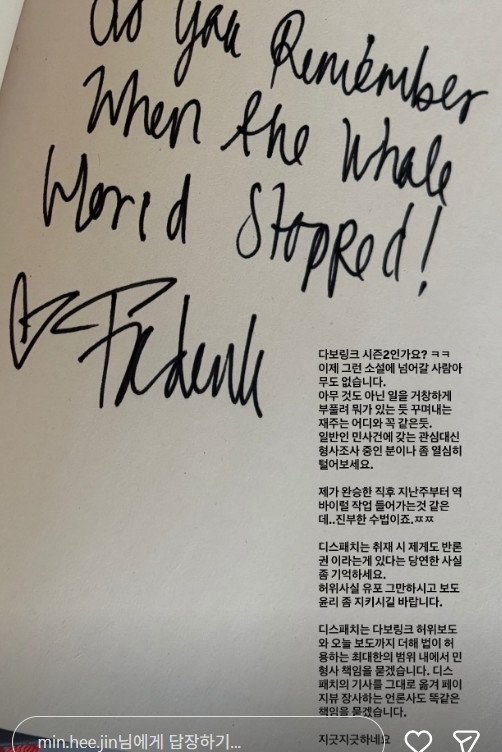 as you Remember
When the Whole
World Stopped!
다보링크 시즌2인가요? ㅋㅋ
이제 그런 소설에 넘어갈 사람아
무도 없습니다.
아무 것도 아닌 일을 거창하게
부풀려 뭐가 있는 듯 꾸며내는
재주는 어디와 꼭 같은듯.
일반인 민사건에 갖는 관심대신
형사조사 중인 분이나 좀 열심히
털어보세요.
제가 완승한 직후 지난주부터 역
바이럴 작업 들어가는것 같은
데..진부한 수법이죠.ㅉㅉ
디스패치는 취재 시 제게도 반론
권 이라는게 있다는 당연한 사실
좀 기억하세요.
허위사실 유포 그만하시고 보도
윤리 좀 지키시길 바랍니다.
디스패치는 다보링크 허위보도
와 오늘 보도까지 더해 법이 허
용하는 최대한의 범위 내에서 민
형사 책임을 묻겠습니다. 디스
패치의 기사를 그대로 옮겨 페이
지뷰 장사하는 언론사도 똑같은
책임을 묻겠습니다.
지긋지긋하네요
min.hee.jin님에게 답장하기...